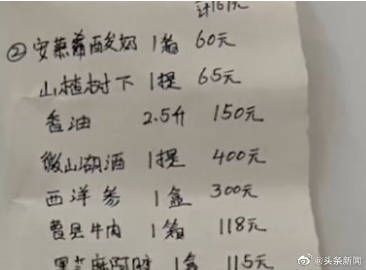 计161元
② 安慕希酸奶 1箱 60元
山楂树下 1提 65元
香油 2.5升 150元
微山湖酒 1提 400元
西洋参 1盒 300元
费县牛肉 1箱 118元
黑芝麻阿胶 1盒 115元
@头条新闻